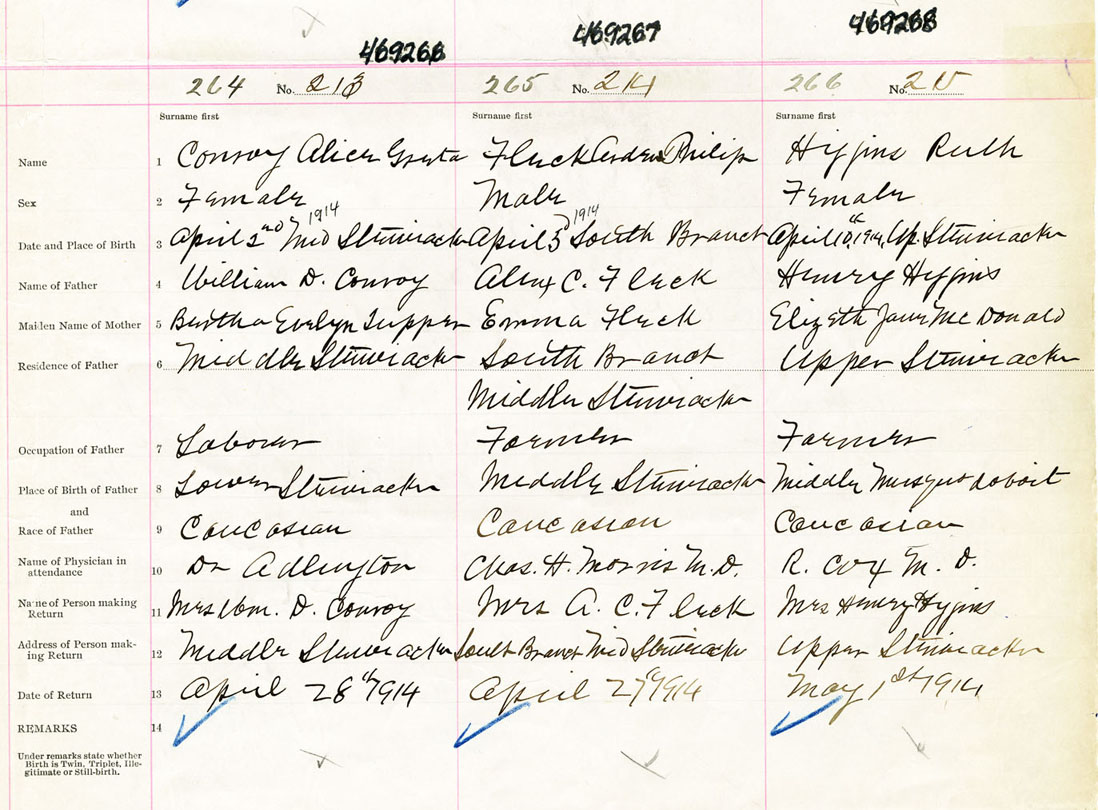 469266 469267 469268
264 No. 213 265 No. 214 266 No. 215
Surname first Surname first Surname first
Name 1 Conroy Alice Greta Fleck Philip Higgins Ruth
Sex 2 Female Male Female
1914 1914
Date and Place of Birth 3 April 2nd Mid Stewiacke April 5 South Branch April 10th, 1914, Up. Stewiacke
Name of Father 4 William D. Conroy Alex C. Fleck Henry Higgins
Maiden Name of Mother 5 Bertha Evelyn Tupper Emma Fleck Elizbth Jane McDonald
Residence of Father 6 Middle Stewiacke South Branch Upper Stewiacke
Middle Stewiacke
Occupation of Father 7 Laborer Farmer Farmer
Place of Birth of Father 8 Lower Stewiacke Middle Stewiacke Middle Musquodoboit
and
Race of Father 9 Caucasian Caucasian Caucasian
Name of Physician in attendance 10 Dr Adlington Chas. H. Morris M.D. R. Cox M. D.
Name of Person making Return 11 Mrs Wm. D. Conroy Mrs A. C. Fleck Mrs Henry Higgins
Address of Person making Return 12 Middle Stewiacke South Branch Mid Stewiacke Upper Stewiacke
Date of Return 13 April 28th 1914 April 27th 1914 May 1st 1914
REMARKS 14
Under remarks state whether
Birth is Twin, Triplet, Ille-
gitimate or Still-birth.